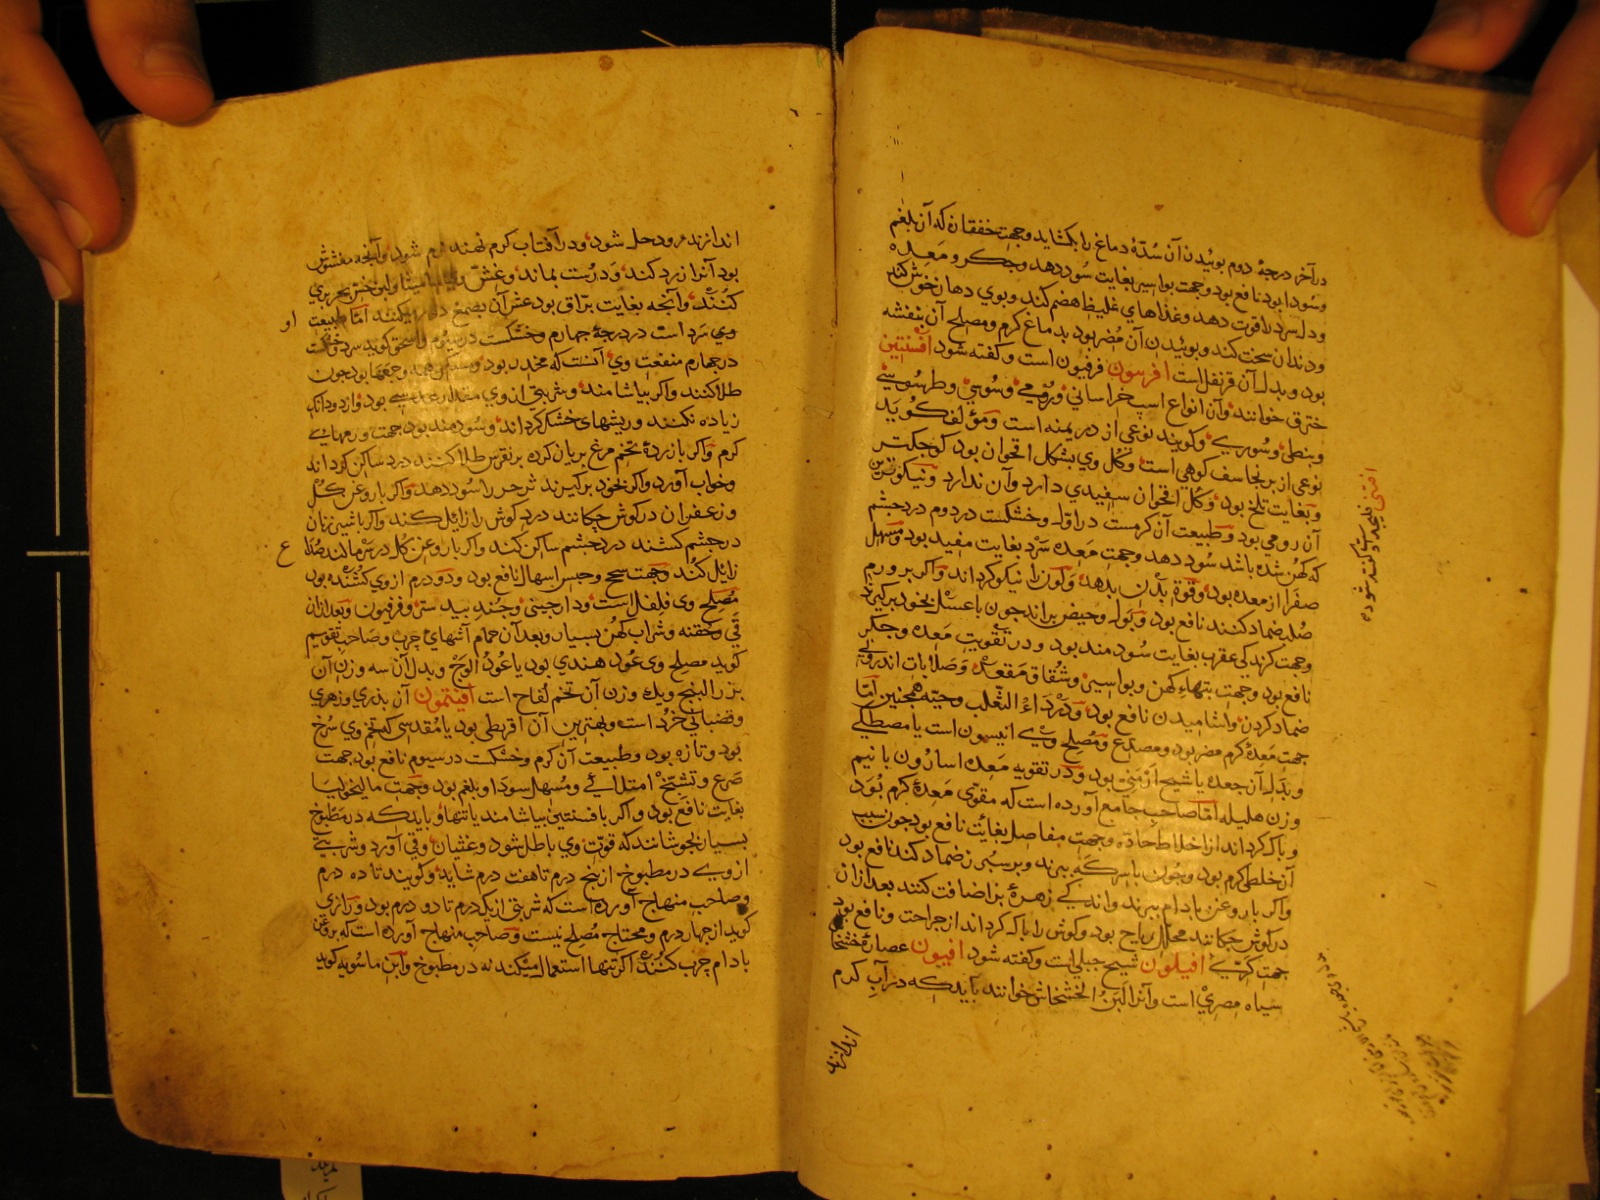 در آخر درجهٔ دوم بوئیدن آن سُدّهٔ دماغ را بکشاید و جهت خفقان که از بلغم
و سودا بود نافع بود و جهت بواسیر بغایت سود دهد و جکر و معده
و دل سرد را قوت دهد و غذاهای غلیظ هضم کند و بوی دهان خوش کند
و دندان سخت کند و بوئیدن آن مُضر بود بدماغ کرم و مصلح آن بنفشه
بود و بدل آن قرنفل است افربیون فرفیون است و کفته شود افسنتین
خترق خوانند و آن انواع است خراسانی و رومی و سوسی و طرسوسی
و نبطی و سوری و کویند نوعی از درمنه است و مؤلف کوید
نوعی از برنجاسف کوهی است و کل وی بشکل اقحوان بود کوجکتر
و بغایت تلخ بود و کل اقحوان سفیدی دارد و آن ندارد و نیکوترین
آن رومی بود و طبیعت آن کرمست در اول و خشکست در دوم درد جشم
که کهن شده باشد سود دهد و جهت معده سرد بغایت مفید بود و مسهل
صفرا از معده بود و قوة بدن بدهد و لون را نیکو کرداند و اکر بر ورم
صلب ضماد کنند نافع بود و بول و حیض براند جون با عسل بخود برکیرند
و جهت کزیدکی عقرب بغایت سودمند بود و در تقویت معده و جکر
نافع بود و جهت تبهای کهن و بواسیر و شقاق مقعد و صلابات اندرونی
ضماد کردن و آشامیدن نافع بود و در داء الثعلب و حیّه همجنین امّا
جهت معدهٔ کرم مضر بود و مصدع و مصلح وی انیسون است یا مصطکی
و بدل آن جعده یا شیح ارمنی بود و در تقویه معده اسارون با نیم
وزن هلیله امّا صاحب جامع آورده است که مقوّی معدهٔ کرم بود
و پاک کرداند از اخلاط حادّه و جهت مفاصل بغایت نافع بود جون سبب
آن خلطی کرم بود و جون با سرکه بپزند و بر سپرز ضماد کنند نافع بود
و اکر با روغن بادام بپزند و اندکی زهرهٔ بز اضافت کنند بعد از آن
در کوش جکانند محلل ریاح بود و کوش را پاک کرداند از جراحت و نافع بود
جهت کری افیلون شیح جبلی است و کفته شود افیون عصارهٔ خشخاش
سیاه مصری است و آنرا لبن الخشخاش خوانند باید که در آب کرم
اندازند
اندازند زود حل شود و در آفتاب کرم نهند نرم شود و آنجه مغشوش
بود آنرا زرد کند و درست بماند و غش
کنند و آنجه بغایت برّاق بود غش آن بصمغ میکنند امّا طبیعت
وی سرد است در درجهٔ جهارم و خشکست در سیوم و اسحق کوید سرد و خشکست
او
در جهارم منفعت وی آنست که مخدر بود بود جون
طلا کنند و اکر بیاشامند و شربتی از وی مقدار بود و از دو دانک
زیاده نکنند و ریشهای خشک کرداند و سودمند بود جهت ورمهای
کرم و اکر با زردهٔ تخم مرغ بریان کرده بر نقرس طلا کنند درد ساکن کرداند
و خواب آورد و اکر بخود برکیرند زحیر را سود دهد و اکر با روغن کل
و زعفران در کوش جکانند درد کوش را زائل کند و اکر با شیر زنان
در جشم کشند درد جشم ساکن کند و اکر با روغن کل در سر مالند صداع
زایل کند و جهت سحج و حبس اسهال نافع بود و دو درم از وی کشنده بود
مصلح وی فلفل است و دارجینی و جند بیدستر و فرفیون و بعد از آن
قی و حقنه و شراب کهن بسیار و بعد آن حمام آشهای چرب و صاحب تقویم
کوید مصلح وی عود هندی بود یا عود الوج و بدل آن سه وزن آن
بزر البنج و یک وزن آن تخم لفاح است افتیمون آن بذری و زهری
و قضبانی خرد است و بهترین آن اقریطی بود یا مقدسی که تخم وی سرخ
بود و تازه بود و طبیعت آن کرم و خشکست در سیوم نافع بود جهت
صرع و تشنّج امتلائی و مسهل سودا و بلغم بود و جهت مالیخولیا
بغایت نافع بود و اکر با افسنتین بیاشامند یا تنها و باید که در مطبوخ
بسیار نجوشانند که قوّت وی باطل شود و غثیان و قی آورد و شربتی
از وی در مطبوخ از پنج درم تا هفت درم شاید و کویند تا ده درم
و صاحب منهاج آورده است که شربتی از یک درم تا دو درم بود و رازی
کوید از جهار درم و محتاج مصلح نیست و صاحب منهاج آورده است که بروغن
بادام چرب کنند اکر تنها استعمال میکنند نه در مطبوخ و ابن ماسویه کوید